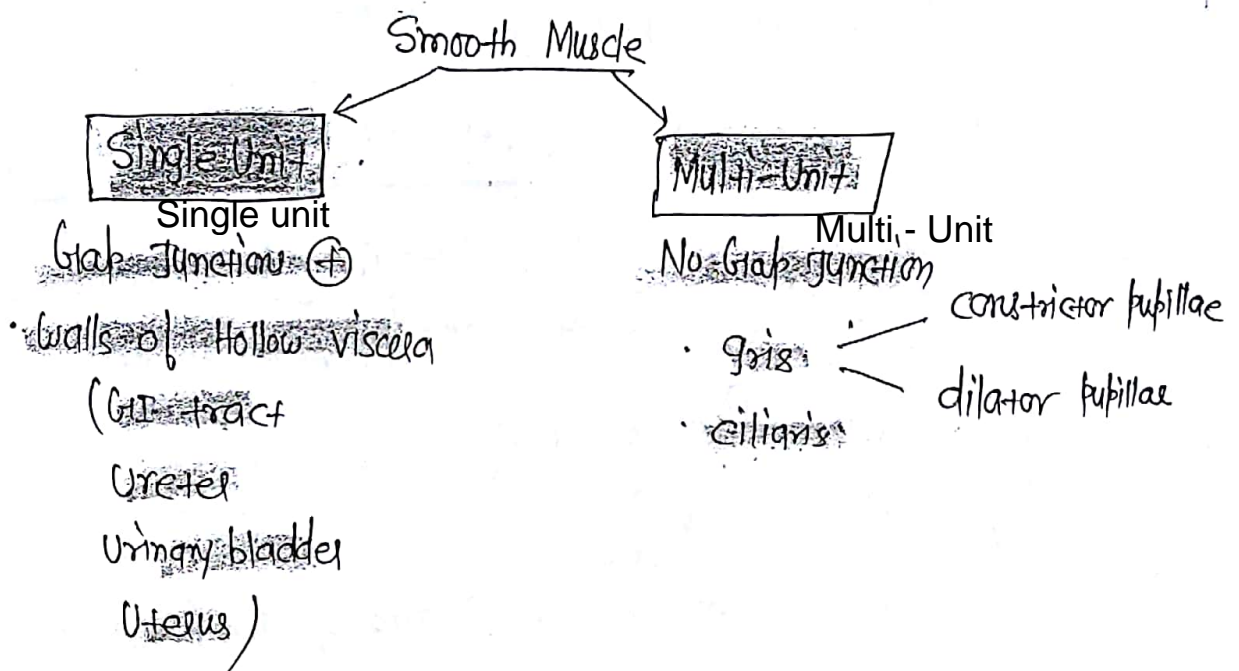 Smooth Muscle
Single Unit
Single unit
Gap Junctions +
• Walls of Hollow viscera
(GI tract
Ureter
Urinary bladder
Uterus)
Multi-Unit
Multi - Unit
No Gap Junction
• Iris
constrictor pupillae
dilator pupillae
• ciliaris